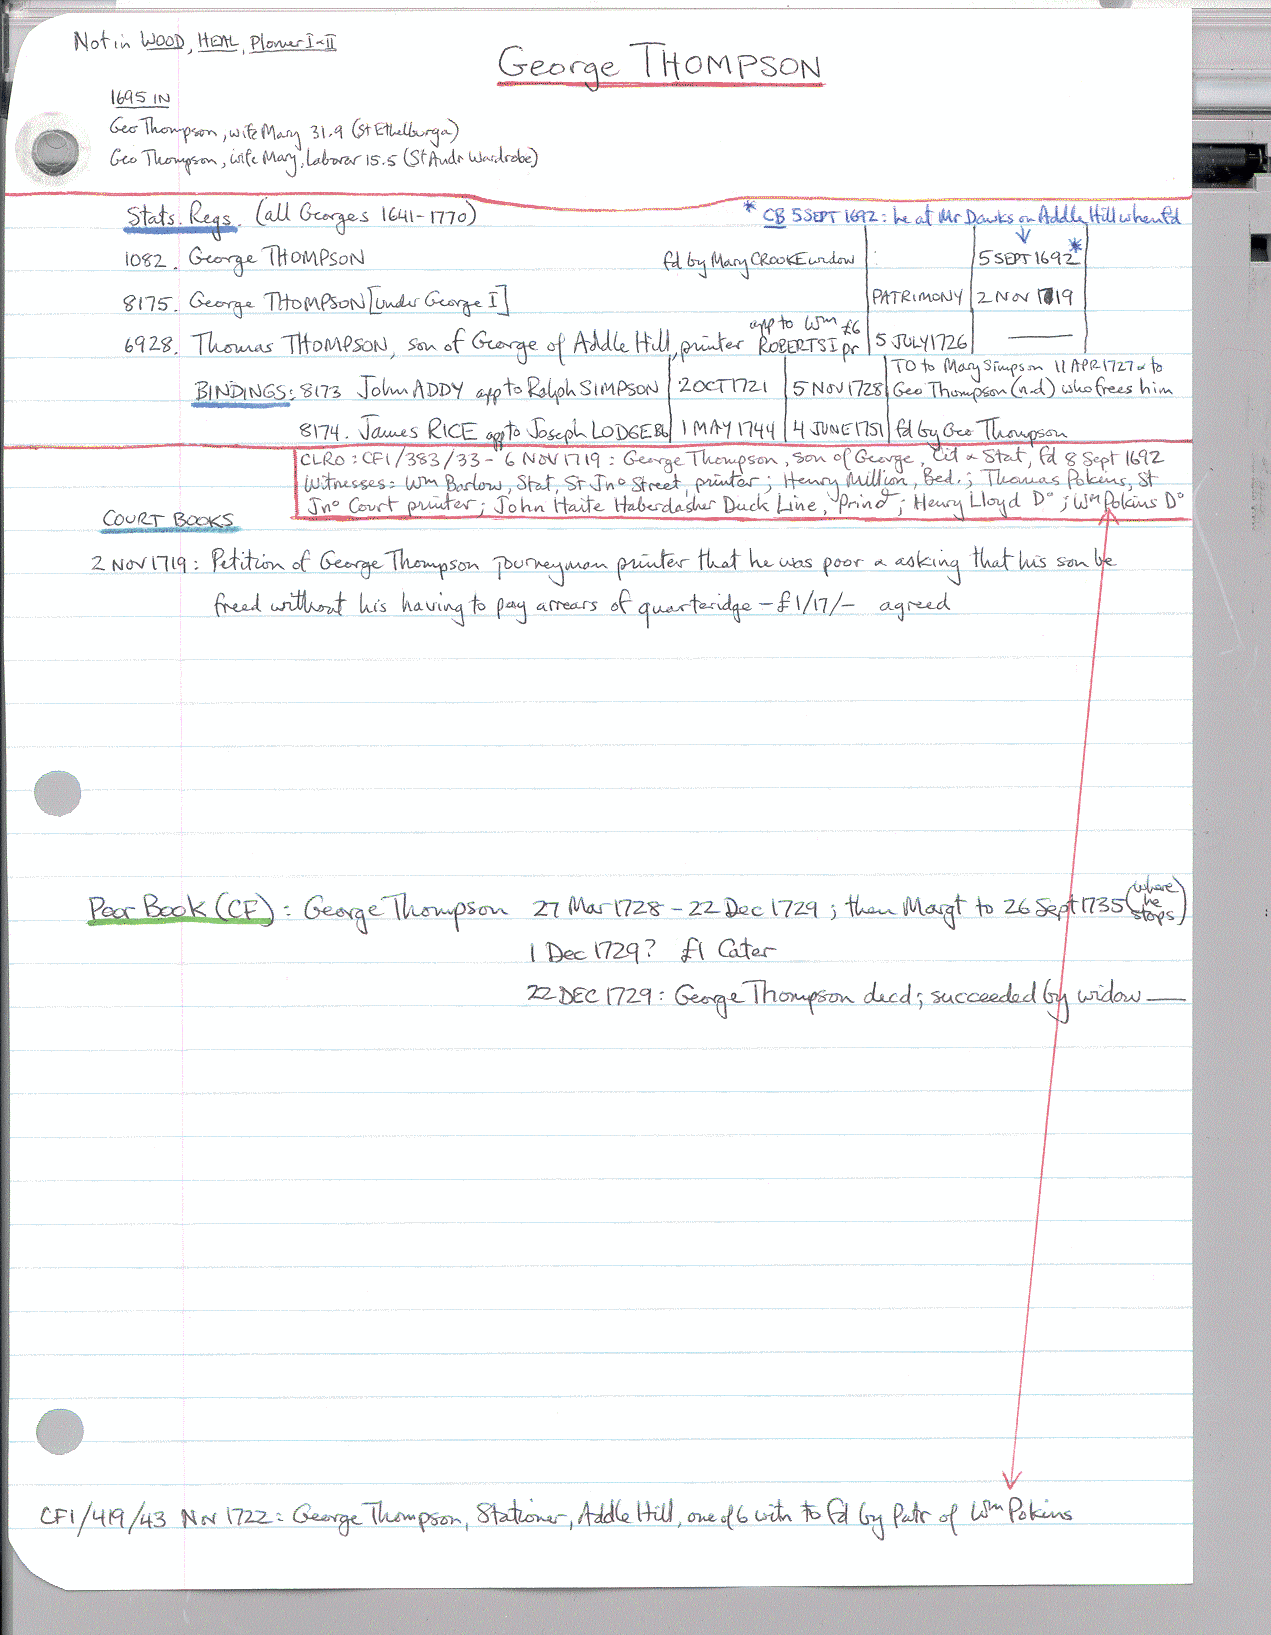 Not in WOOD, HEAL, Plomer I-II
George THOMPSON
1695 IN
Geo Thompson, wife Mary 31.9 (St Ethelburga)
Geo Thompson, wife Mary, Laborar 15.5 (St Andr Wardrobe)
Stats. Regs. (all Georges 1641-1770)
* CB 5 SEPT 1692: he at Mr Dawks on Addle Hill when fd
1082. George THOMPSON fd by Mary CROOKE widow 5 SEPT 1692 *
8175. George THOMPSON [under George I] PATRIMONY 2 NOV 1719
6928. Thomas THOMPSON, son of George of Addle Hill, printer app to Wm ROBERTS I pr £6 5 JULY 1726 —
BINDINGS: 8173 John ADDY app to Ralph SIMPSON 2 OCT 1721 5 NOV 1728 TO to Mary Simpson 11 APR 1727 & to Geo Thompson (n.d) who frees him
8174. James RICE app to Joseph LODGE 1 MAY 1744 4 JUNE 1751 fd by Geo Thompson
CLRO: CF1/383/33 - 6 NOV 1719: George Thompson, son of George, Cit & Stat, fd 8 Sept 1692
Witnesses: Wm Barlow, Stat, St Jno Street, printer; Henry Million, Bed.; Thomas Pokins, St
Jno Court printer; John Haite Haberdasher Duck Line, Prin; Henry Lloyd Do; Wm Pokins Do
COURT BOOKS
2 NOV 1719: Petition of George Thompson journeyman printer that he was poor & asking that his son be
freed without his having to pay arrears of quarteridge - £1/17/- agreed
Poor Book (CF): George Thompson 27 Mar 1728 - 22 Dec 1729; then Margt to 26 Sept 1735 (where he stops)
1 Dec 1729? £1 Cater
22 DEC 1729: George Thompson decd; succeeded by widow —
CF1/419/43 Nov 1722: George Thompson, Stationer, Addle Hill, one of 6 witn to fd by Patr of Wm Pokins